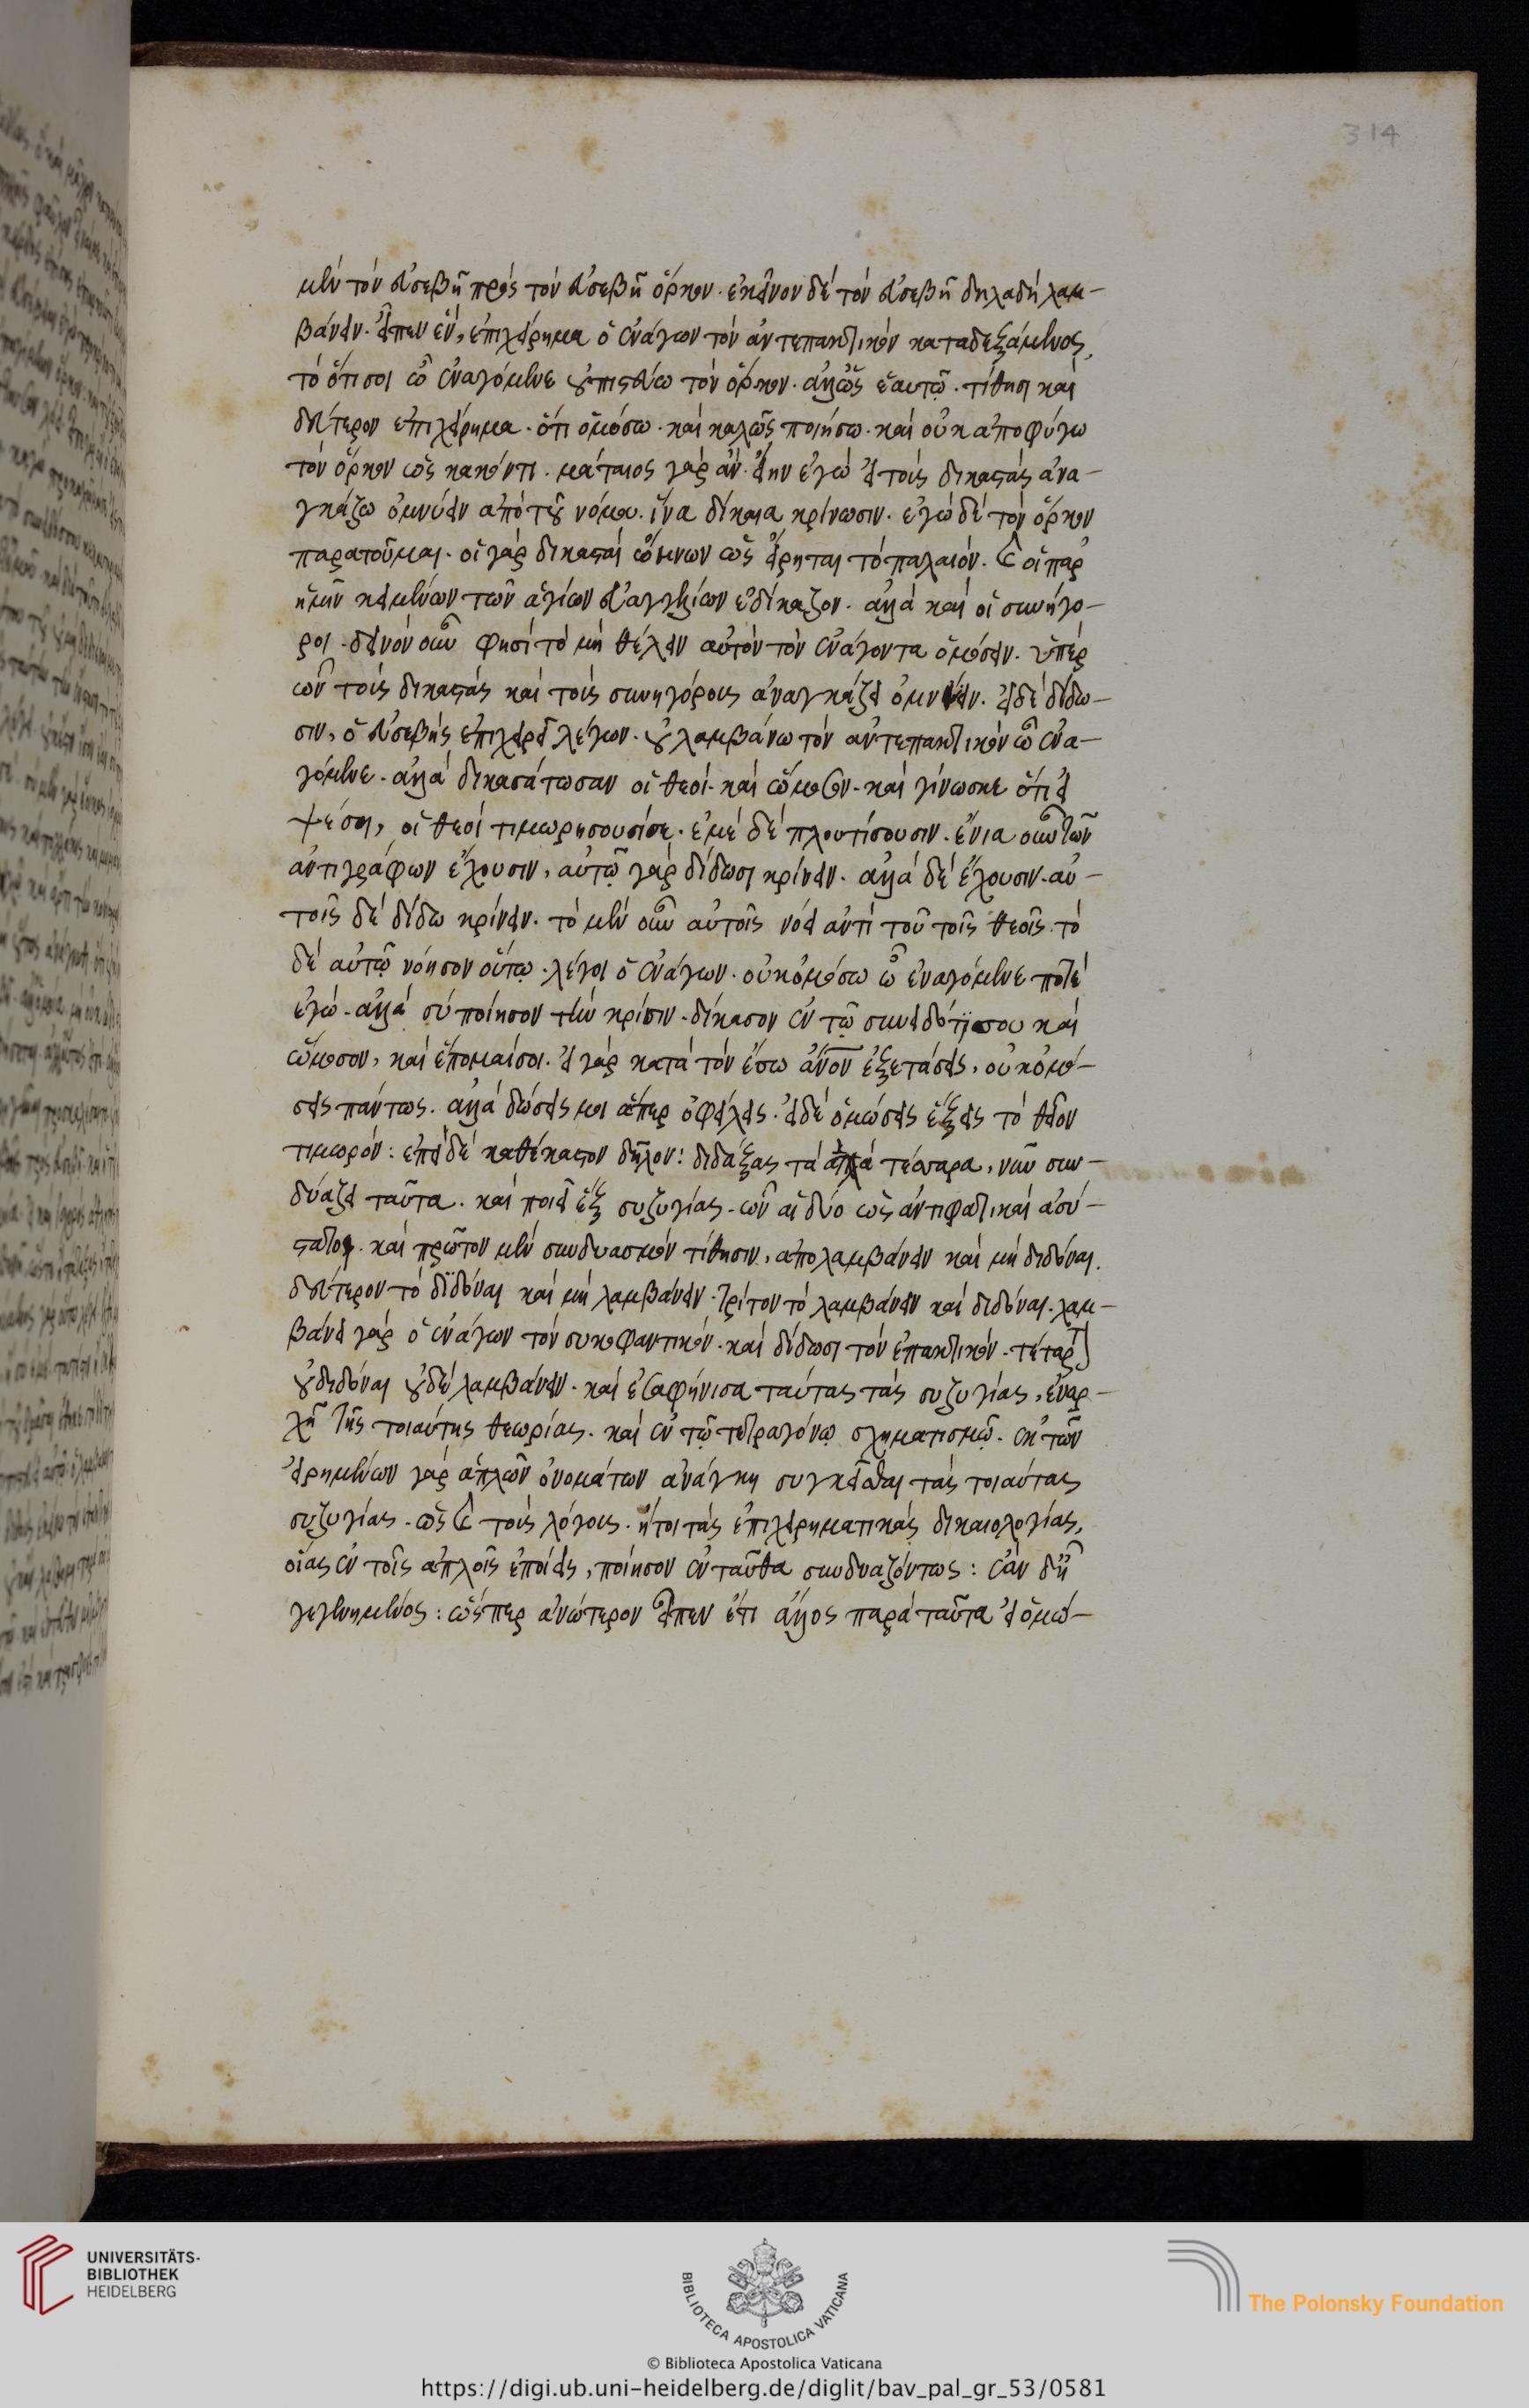 314
μὲν τὸν εὐσεβῆ πρὸς τὸν εὐσεβῆ ὅρκον. ἐκεῖνον δὲ τὸν εὐσεβῆ δηλαδὴ λαμ-
βάνειν. εἶπεν οὖν, ἐπιχείρημα ὁ ἐνάγων τὸν ἀντεπακτικὸν καταδεξάμενος,
τὸ ὅτι σοι ὦ ἐναγόμενε οὐ πιστεύω τὸν ὅρκον. ἀλλ' ὡς ἑαυτῷ. τίθησι καὶ
δεύτερον ἐπιχείρημα. ὅτι ὀμόσω. καὶ καλῶς ποιήσω. καὶ οὐκ ἀποφύγω
τὸν ὅρκον ὡς κακόν τι. μάταιος γὰρ ἂν εἴην ἐγὼ εἰ τοὺς δικαστὰς ἀνα-
γκάζω ὀμνύειν ἀπὸ τοῦ νόμου. ἵνα δίκαια κρίνωσιν. ἐγὼ δὲ τὸν ὅρκον
παραιτοῦμαι. οἱ γὰρ δικασταὶ ὤμνυον ὡς εἴρηται τὸ παλαιόν. καὶ οἱ παρ'
ἡμῖν κειμένων τῶν ἁγίων εὐαγγελίων ἐδίκαζον. ἀλλὰ καὶ οἱ συνήγο-
ροι. δεινὸν οὖν φησὶ τὸ μὴ θέλειν αὐτὸν τὸν ἐνάγοντα ὀμόσειν. ὑπὲρ
ὧν τοὺς δικαστὰς καὶ τοὺς συνηγόρους ἀναγκάζει ὀμνύειν. εἰ δὲ δίδω-
σιν, ὁ εὐσεβὴς ἐπιχειρεῖ λέγων. οὐ λαμβάνω τὸν ἀντεπακτικὸν ὦ ἐνα-
γόμενε. ἀλλὰ δικασάτωσαν οἱ θεοί. καὶ ὤμοσον. καὶ γίνωσκε ὅτι εἰ
ψεύσῃ, οἱ θεοὶ τιμωρήσουσί σε. ἐμὲ δὲ πλουτίσουσιν. ἔνια οὖν τῶν
ἀντιγράφων ἔχουσιν, αὐτῷ γὰρ δίδωσι κρίνειν. ἄλλα δὲ ἔχουσιν. αὐ-
τοῖς δὲ δίδω κρίνειν. τὸ μὲν οὖν αὐτοῖς νόει ἀντὶ τοῦ τοῖς θεοῖς. τὸ
δὲ αὐτῷ νόησον οὕτω. λέγοι ὁ ἐνάγων. οὐκ ὀμόσω ὦ ἐναγόμενε ποτὲ
ἐγώ. ἀλλὰ σὺ ποίησον τὴν κρίσιν. δίκασον ἐν τῷ συνειδότι σου καὶ
ὤμοσον, καὶ ἕπομαί σοι. εἰ γὰρ κατὰ τὸν ἔσω ἄνον ἐξετάσεις, οὐκ ὀμό-
σεις πάντως. ἀλλὰ δώσεις μοι ἅπερ ὀφείλεις. εἰ δὲ ὀμώσεις ἕξεις τὸ θεῖον
τιμωρόν: ἐπεὶ δὲ καθέκαστον δῆλον: διδάξας τὰ ἁπλᾶ τέσσαρα, νῦν συν-
δυάζει ταῦτα. καὶ ποιεῖ ἓξ συζυγίας. ὧν αἱ δύο ὡς ἀντιφατικαὶ ἀσύ-
στατοι. καὶ πρῶτον μὲν συνδυασμὸν τίθησιν, ἀπολαμβάνειν καὶ μὴ διδόναι.
δεύτερον τὸ διδόναι καὶ μὴ λαμβάνειν. τρίτον τὸ λαμβάνειν καὶ διδόναι. λαμ-
βάνει γὰρ ὁ ἐνάγων τὸν συκοφαντικόν. καὶ δίδωσι τὸν ἐπακτικόν. τέταρτ
οὐ διδόναι οὐδὲ λαμβάνειν. καὶ ἐσαφήνισα ταύτας τὰς συζυγίας, ἐν ἀρ-
χῇ τῆς τοιαύτης θεωρίας. καὶ ἐν τῷ τετραγώνῳ σχηματισμῷ. ἐκ τῶν
εἰρημένων γὰρ ἁπλῶν ὀνομάτων ἀνάγκη συγκεῖσθαι τὰς τοιαύτας
συζυγίας. ὡς καὶ τοὺς λόγους. ἤτοι τὰς ἐπιχειρηματικὰς δικαιολογίας,
οἵας ἐν τοῖς ἁπλοῖς ἐποίεις, ποίησον ἐνταῦθα συνδυαζόντως: ἐὰν δὲ ᾖ
γεγενημένος: ὥσπερ ἀνώτερον εἶπεν ἔτι ἄλλος παρὰ ταῦτα εἰ ὀμώ-
UNIVERSITÄTS-
BIBLIOTHEK
HEIDELBERG
BIBLIOTECA APOSTOLICA VATICANA
The Polonsky Foundation
© Biblioteca Apostolica Vaticana
https://digi.ub.uni-heidelberg.de/diglit/bav_pal_gr_53/0581